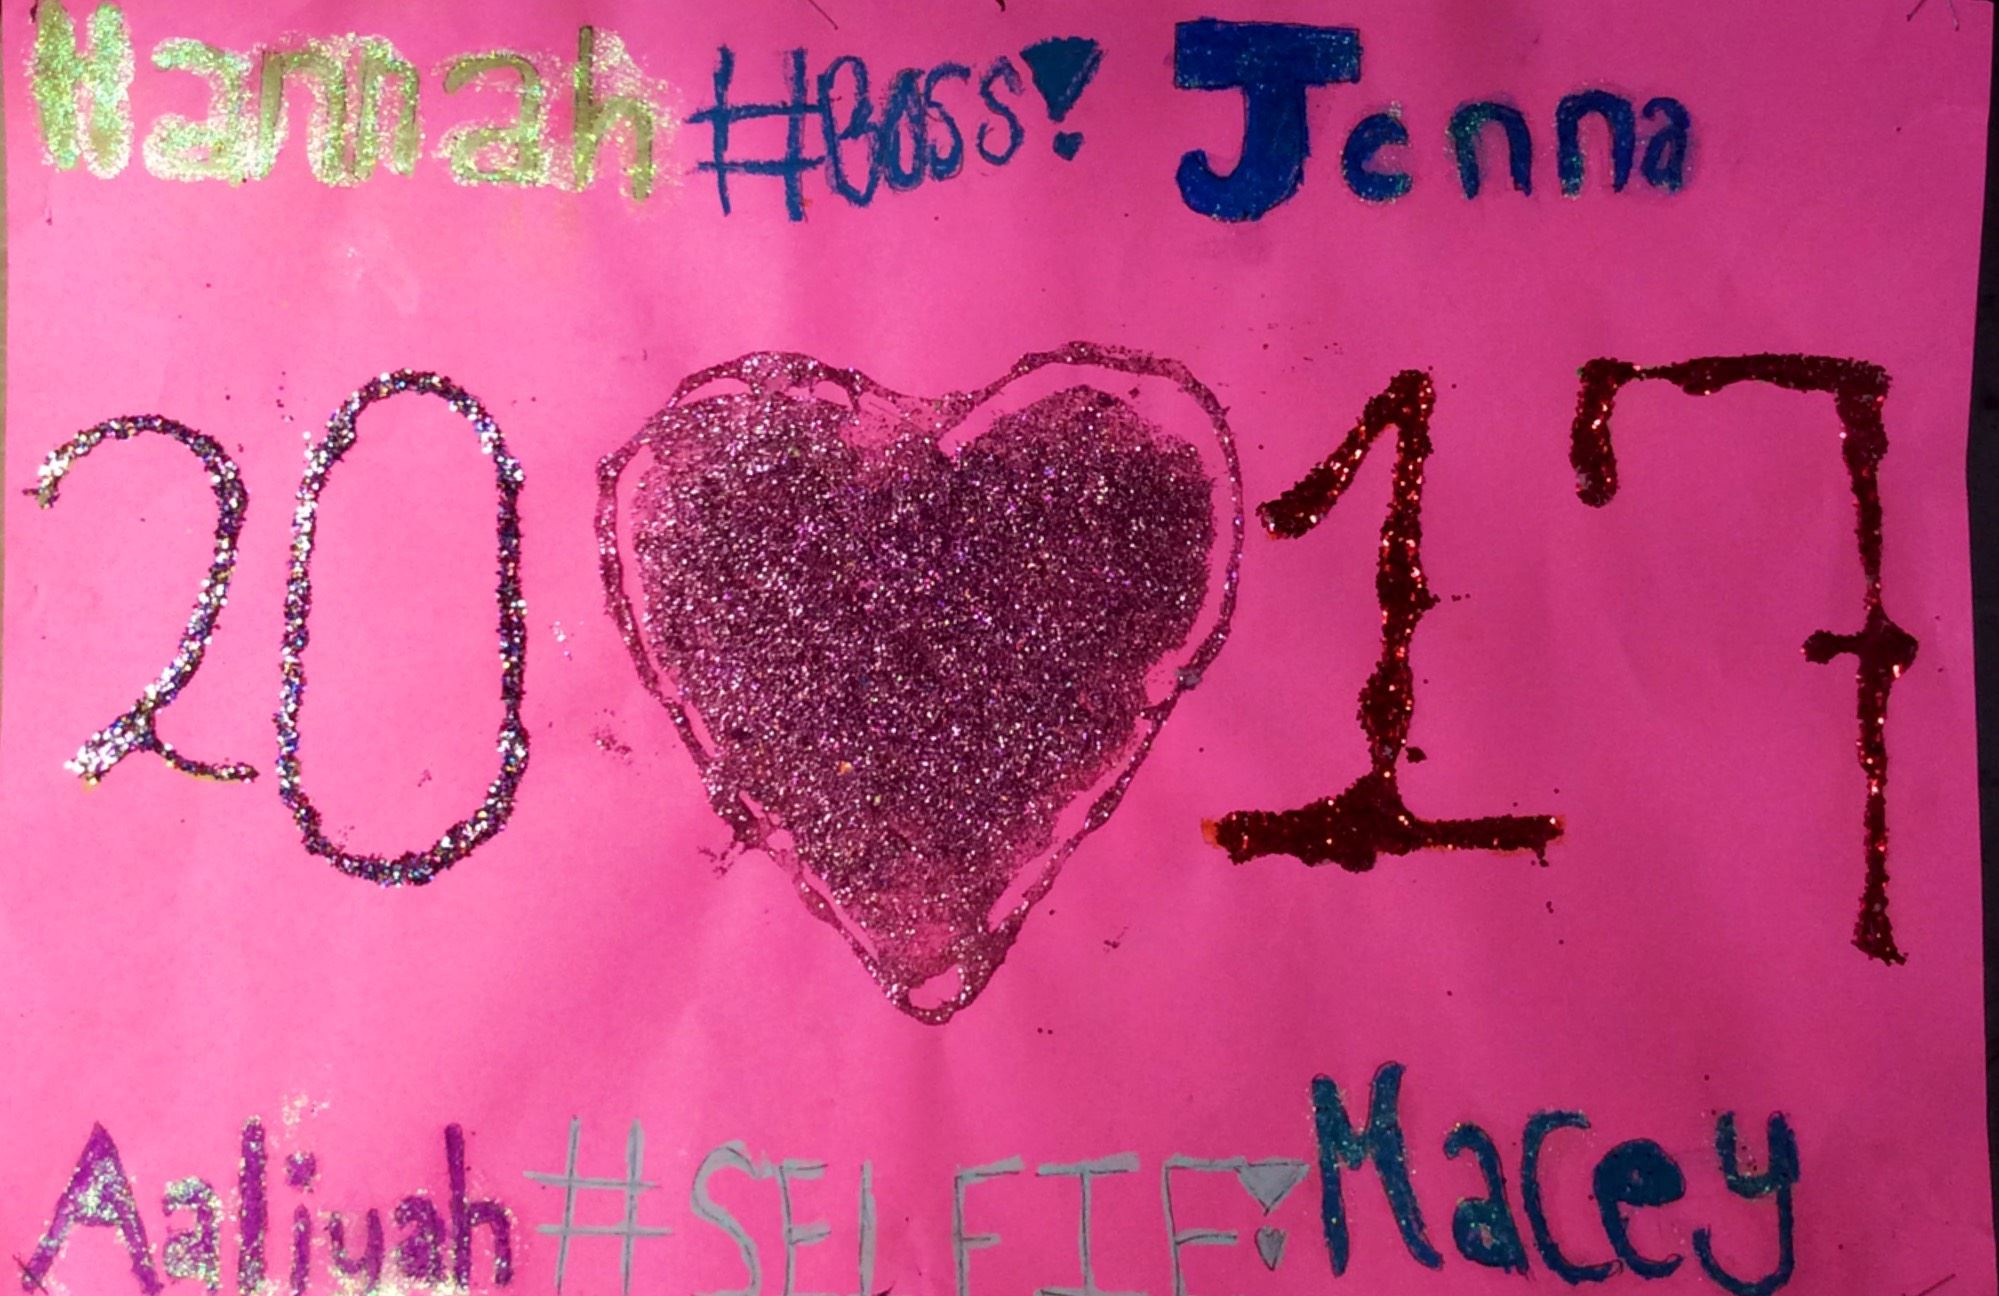 Hannah #BOSS! Jenna
20 17
Aaliyah #SELFIE! Macey